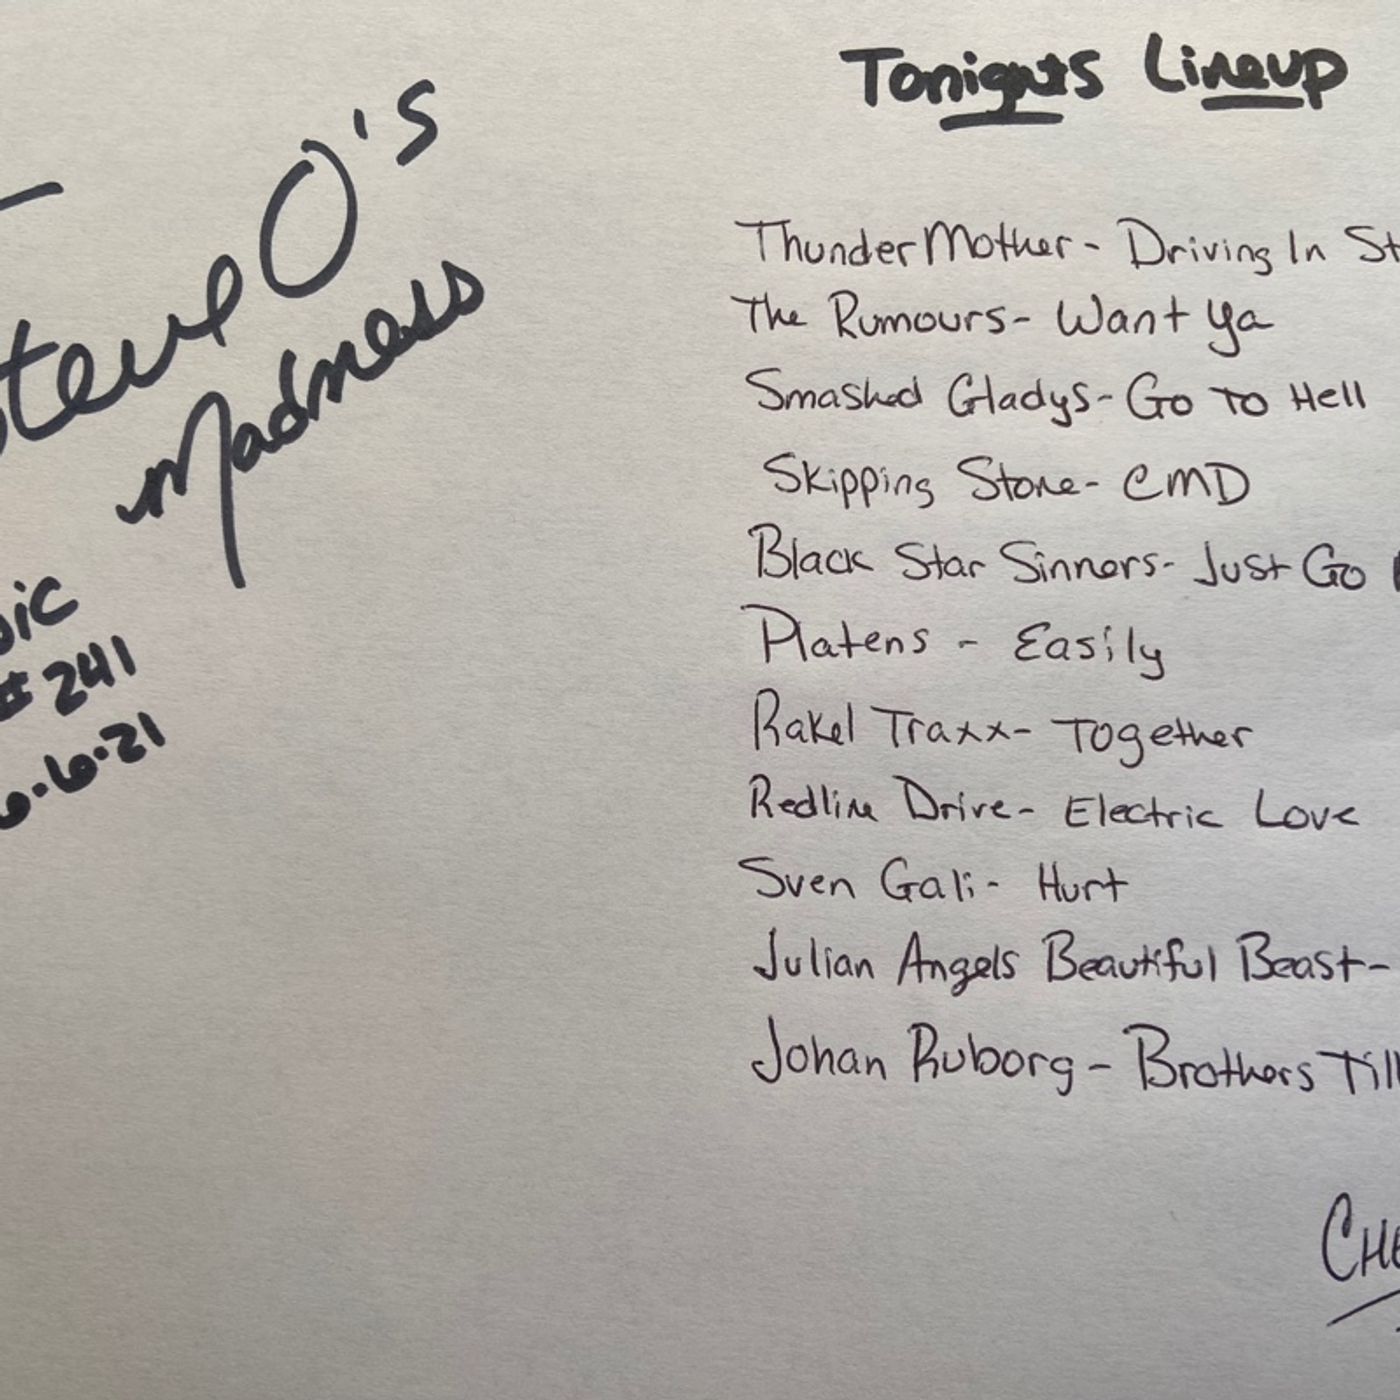 Steve O's
Madness
#241
6.21
Tonights Lineup
ThunderMother- Driving In
The Rumours- Want Ya
Smashed Gladys- Go To Hell
Skipping Stone- CMD
Black Star Sinners- Just Go
Platens - Easily
Rakel Traxx- Together
Redline Drive- Electric Love
Sven Gali- Hurt
Julian Angels Beautiful Beast-
Johan Ruborg- Brothers Till